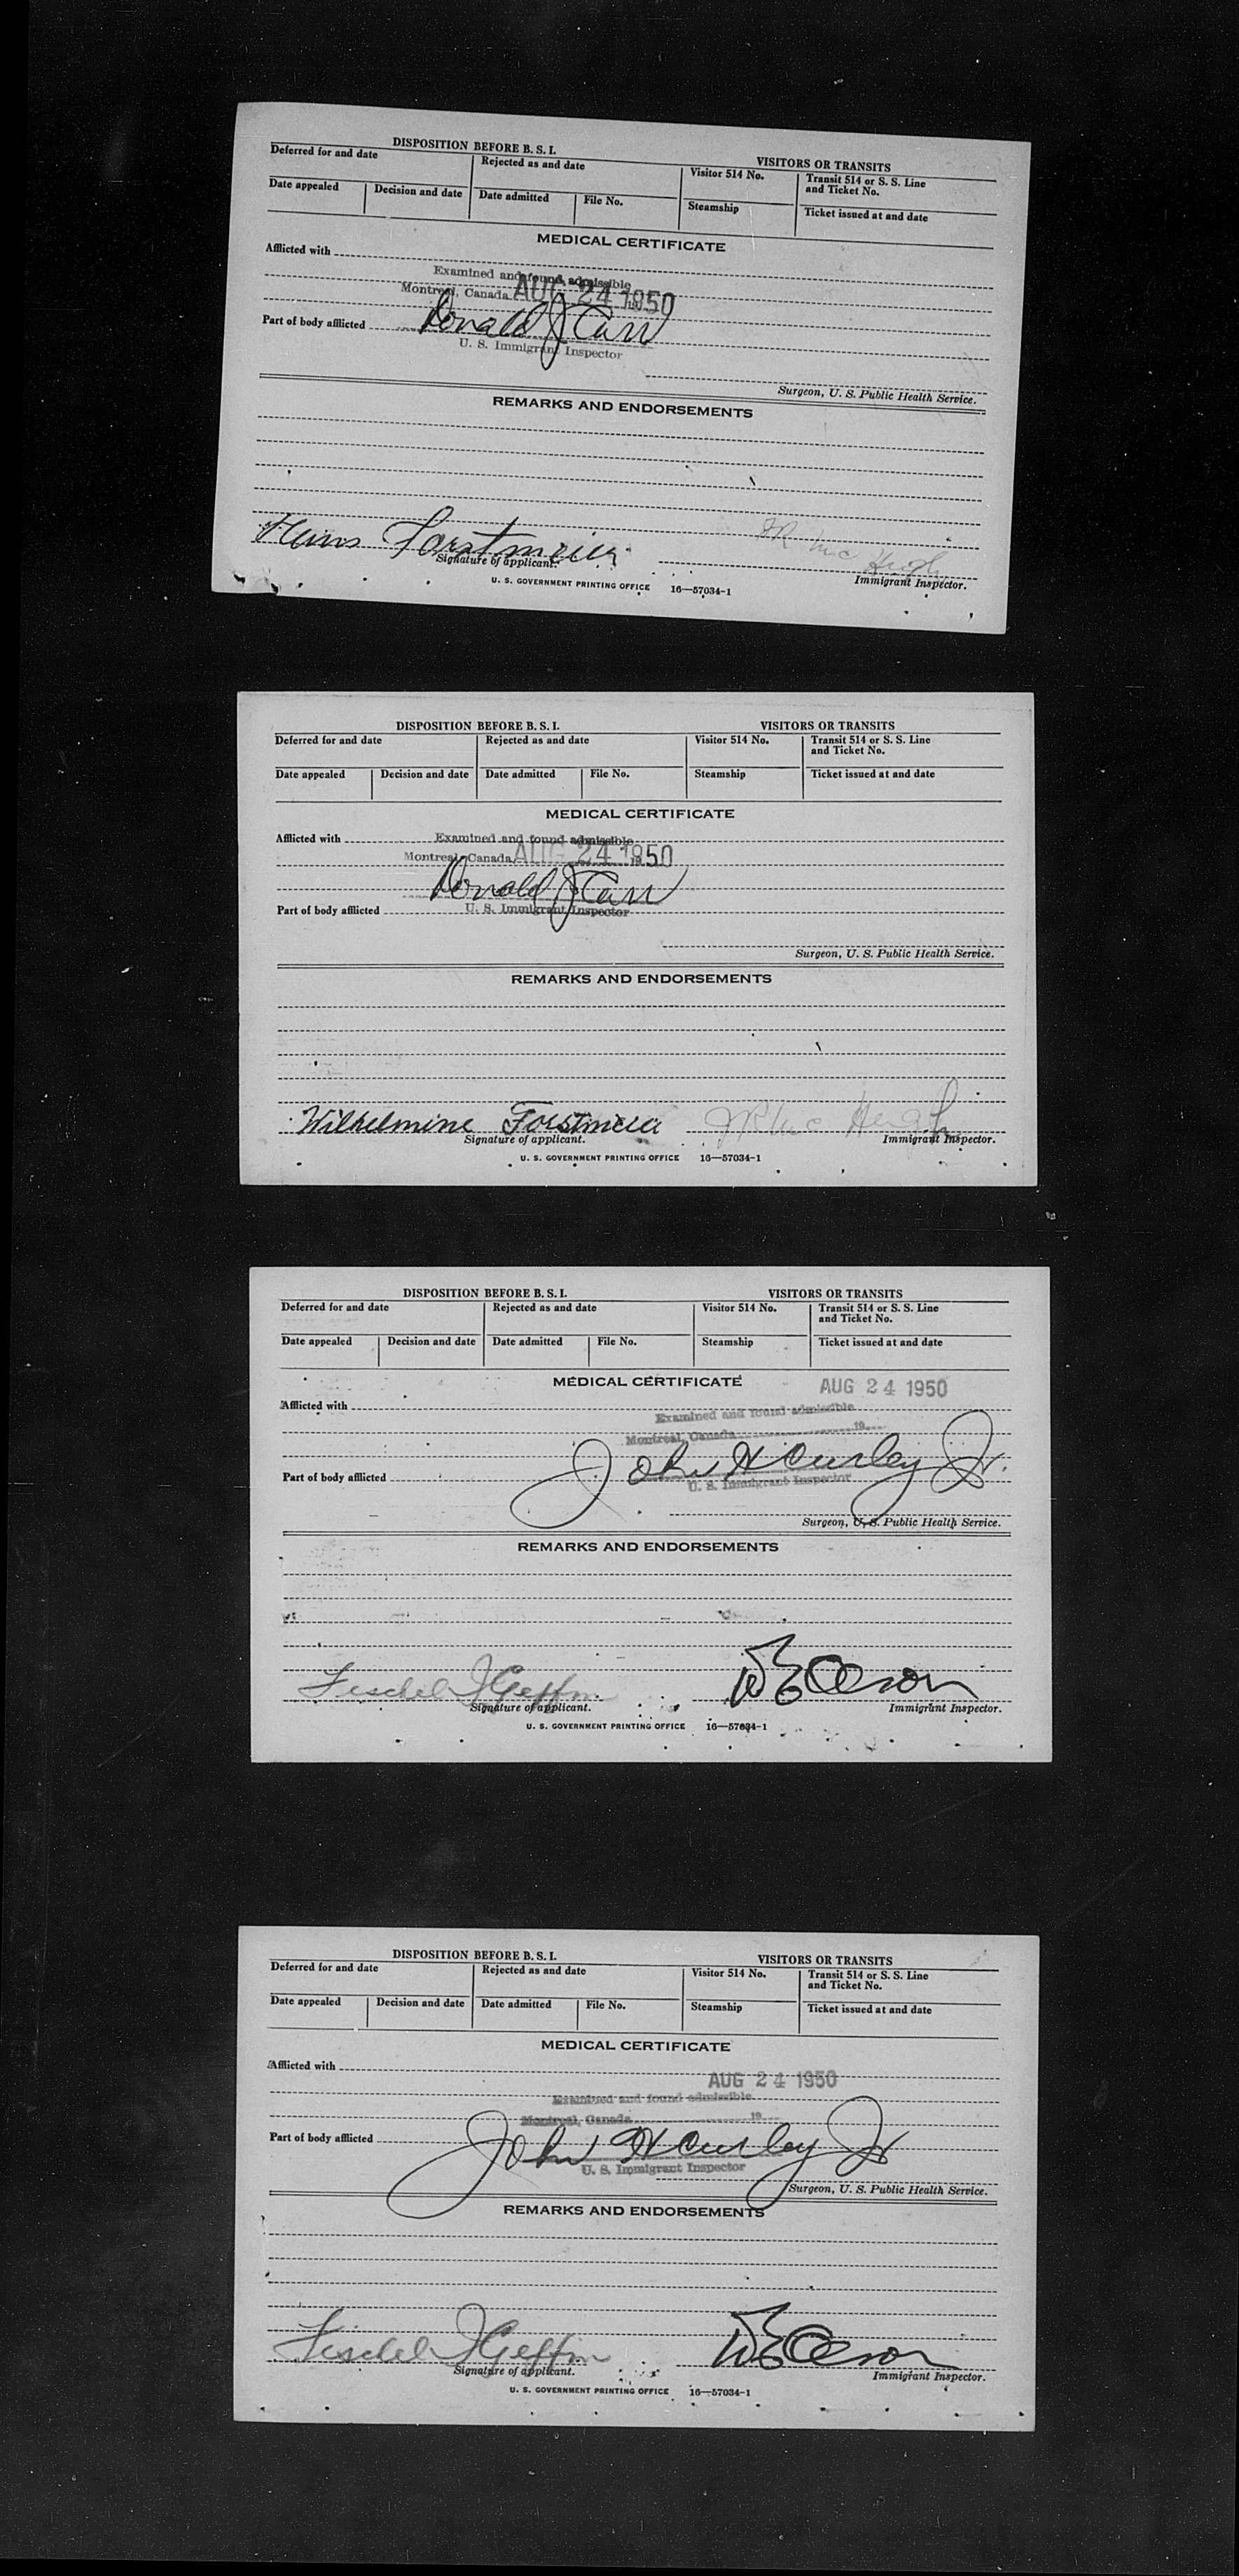 DISPOSITION BEFORE B. S. I. VISITORS OR TRANSITS
Deferred for and date Rejected as and date Visitor 514 No. Transit 514 or S. S. Line and Ticket No.
Date appealed Decision and date Date admitted File No. Steamship Ticket issued at and date
MEDICAL CERTIFICATE
Afflicted with
Examined and found admissible
Montreal, Canada AUG 24 1950
Donald J Carr
Part of body afflicted
U. S. Immigrant Inspector
Surgeon, U. S. Public Health Service.
REMARKS AND ENDORSEMENTS
Forstmeier
Signature of applicant. Immigrant Inspector.
U. S. GOVERNMENT PRINTING OFFICE 16—57034-1
DISPOSITION BEFORE B. S. I. VISITORS OR TRANSITS
Deferred for and date Rejected as and date Visitor 514 No. Transit 514 or S. S. Line and Ticket No.
Date appealed Decision and date Date admitted File No. Steamship Ticket issued at and date
MEDICAL CERTIFICATE
Afflicted with
Examined and found admissible
Montreal, Canada AUG 24 1950
Donald J Carr
Part of body afflicted
U. S. Immigrant Inspector
Surgeon, U. S. Public Health Service.
REMARKS AND ENDORSEMENTS
Wilhelmine Forstmeier
Signature of applicant. Immigrant Inspector.
U. S. GOVERNMENT PRINTING OFFICE 16—57034-1
DISPOSITION BEFORE B. S. I. VISITORS OR TRANSITS
Deferred for and date Rejected as and date Visitor 514 No. Transit 514 or S. S. Line and Ticket No.
Date appealed Decision and date Date admitted File No. Steamship Ticket issued at and date
MEDICAL CERTIFICATE AUG 24 1950
Afflicted with
Examined and found admissible
Montreal, Canada 19
John H Curley Jr.
Part of body afflicted
U. S. Immigrant Inspector
Surgeon, U. S. Public Health Service.
REMARKS AND ENDORSEMENTS
Fischel J Geffin
Signature of applicant. Immigrant Inspector.
U. S. GOVERNMENT PRINTING OFFICE 16—57034-1
DISPOSITION BEFORE B. S. I. VISITORS OR TRANSITS
Deferred for and date Rejected as and date Visitor 514 No. Transit 514 or S. S. Line and Ticket No.
Date appealed Decision and date Date admitted File No. Steamship Ticket issued at and date
MEDICAL CERTIFICATE
Afflicted with
AUG 24 1950
Examined and found admissible
Montreal, Canada 19
John H Curley Jr
Part of body afflicted
U. S. Immigrant Inspector
Surgeon, U. S. Public Health Service.
REMARKS AND ENDORSEMENTS
Fischel J Geffin
Signature of applicant. Immigrant Inspector.
U. S. GOVERNMENT PRINTING OFFICE 16—57034-1